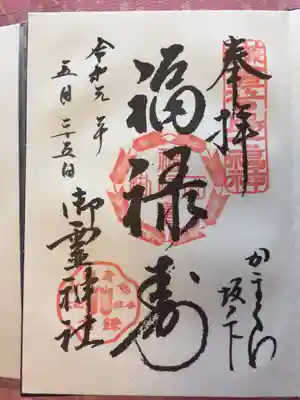 奉拝
かまくら
坂ノ下
福禄寿
令和元年
五月二十五日
御霊神社